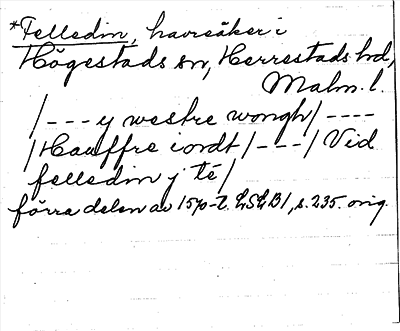 *Felledin, havreåker i
Högestads sn, Herrestads hd,
Malm. l.
/--- y westre wongh/ ----
/Hauffre iordt/---/ Vid
felledin j té/
förra delen av 1570-t. LSLB1, s. 235. orig.